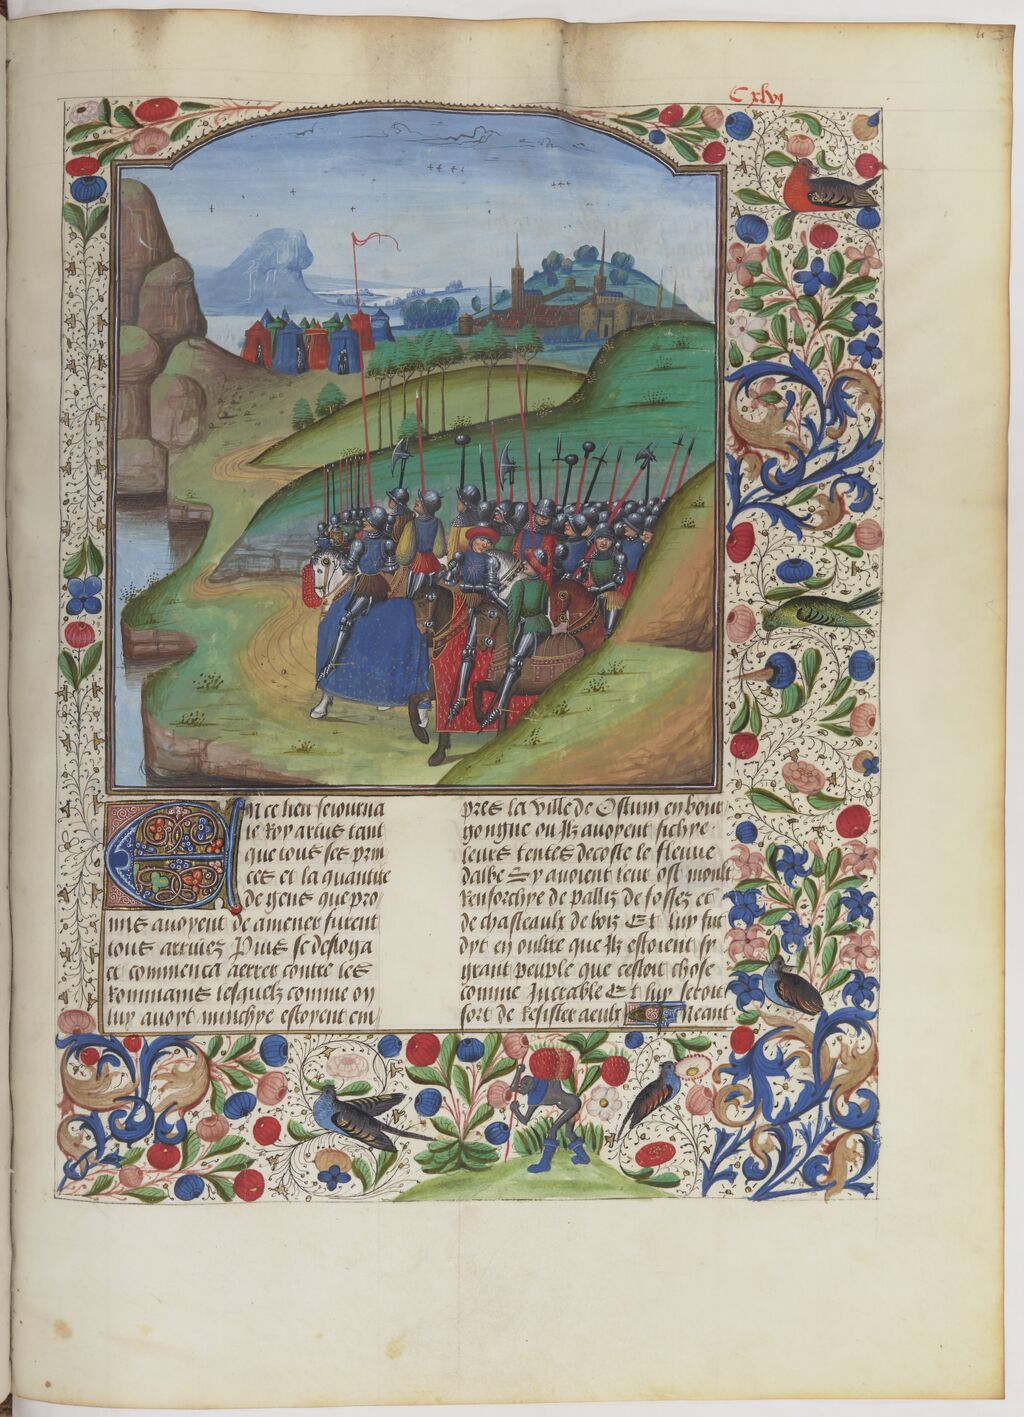 C xlvj
En ce lieu seiourna
le Roy artus tant
que tous ses prin
ces et la quantite
de gens que pro
mis avoyent de amener furent
tous arrivez Puis se desloga
et commenca aerrer contre les
Rommains lesquelz comme on
luy avoyt ... estoyent em
pres la ville de Ostum en bour
gongne ou Ilz avoyent fichye
leurs tentes decoste le fleuve
dalbe Et y avoient leur ost moult
Renforchye de pallis de fossez et
de chasteaulx de bois Et luy fut
dyt en oultre que Ilz estoient sy
grant peuple que cestoit chose
comme Increable Et luy seroit
fort de Resister a eulx Neant